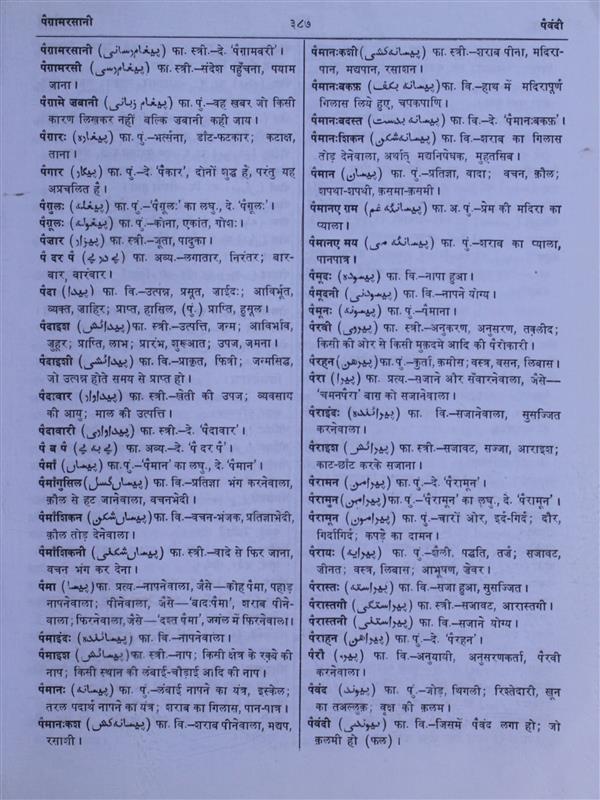 पैग़ामरसानी ३८७ पैवंदी
पैग़ामरसानी (پیغام رسانی) फा. स्त्री.–दे. 'पैग़ामबरी'।
पैग़ामरसी (پیغام رسی) फा. स्त्री.–संदेश पहुँचना, पयाम
जाना।
पैग़ामे ज़बानी (پیغام زبانی) फा. पुं.–वह खबर जो किसी
कारण लिखकर नहीं बल्कि ज़बानी कही जाय।
पैग़ारः (پیغارہ) फा. पुं.–भर्त्सना, डाँट-फटकार; कटाक्ष,
ताना।
पैगार (پیگار) फा. पुं.–दे. 'पैकार', दोनों शुद्ध हैं, परंतु यह
अप्रचलित है।
पैग़ुलः (پیغلہ) फा. पुं.–'पैग़ूलः' का लघु., दे. 'पैग़ूलः'।
पैग़ूलः (پیغولہ) फा. पुं.–कोना, एकांत, गोशः।
पैज़ार (پیزار) फा. स्त्री.–जूता, पादुका।
पै दर पै (پے در پے) फा. अव्य.–लगातार, निरंतर; बार-
बार, बारंबार।
पैदा (پیدا) फा. वि.–उत्पन्न, प्रसूत, जाईदः; आविर्भूत,
व्यक्त, ज़ाहिर; प्राप्त, हासिल, (पुं.) प्राप्ति, हुसूल।
पैदाइश (پیدائش) फा. स्त्री.–उत्पत्ति, जन्म; आविर्भाव,
ज़ुहूर; प्राप्ति, लाभ; प्रारंभ, शुरूआत; उपज, जमना।
पैदाइशी (پیدائشی) फा. वि.–प्राकृत, फ़ित्री; जन्मसिद्ध,
जो उत्पन्न होते समय से प्राप्त हो।
पैदःवार (پیداوار) फा. स्त्री.–खेती की उपज; व्यवसाय
की आयु; माल की उत्पत्ति।
पैदावारी (پیداواری) फा. स्त्री.–दे. 'पैदावार'।
पै ब पै (پے بہ پے) फा. अव्य.–दे. 'पै दर पै'।
पैमाँ (پیماں) फा. पुं.–'पैमान' का लघु., दे. 'पैमान'।
पैमाँगुसिल (پیماں گسل) फा. वि.–प्रतिज्ञा भंग करनेवाला,
क़ौल से हट जानेवाला, वचनभेदी।
पैमाँशिकन (پیماں شکن) फा. वि.–वचन-भंजक, प्रतिज्ञाभेदी,
क़ौल तोड़ देनेवाला।
पैमाँशिकनी (پیماں شکنی) फा. स्त्री.–वादे से फिर जाना,
वचन भंग कर देना।
पैमा (پیما) फा. प्रत्य.–नापनेवाला, जैसे—'कोह पैमा, पहाड़
नापनेवाला; पीनेवाला, जैसे—'बादःपैमा', शराब पीने-
वाला; फिरनेवाला, जैसे—'दश्त पैमा', जंगल में फिरनेवाला।
पैमाइंदः (پیمائندہ) फा. वि.–नापनेवाला।
पैमाइश (پیمائش) फा. स्त्री.–नाप; किसी क्षेत्र के रक़्बे की
नाप; किसी स्थान की लंबाई-चौड़ाई आदि की नाप।
पैमानः (پیمانہ) फा. पुं.–लंबाई नापने का यंत्र, इस्केल;
तरल पदार्थ नापने का यंत्र; शराब का गिलास, पान-पात्र।
पैमानःकश (پیمانہ کش) फा. वि.–शराब पीनेवाला, मद्यप,
रसाशी।
पैमानःकशी (پیمانہ کشی) फा. स्त्री.–शराब पीना, मदिरा-
पान, मद्यपान, रसाशन।
पैमानःबकफ़ (پیمانہ بکف) फा. वि.–हाथ में मदिरापूर्ण
गिलास लिये हुए, चषकपाणि।
पैमानःबदस्त (پیمانہ بدست) फा. वि.–दे. 'पैमानःबकफ़'।
पैमानःशिकन (پیمانہ شکن) फा. वि.–शराब का गिलास
तोड़ देनेवाला, अर्थात् मद्यनिषेधक, मुहतसिब।
पैमान (پیمان) फा. पुं.–प्रतिज्ञा, वादा; वचन, क़ौल;
शपथा-शपथी, क़समा-क़समी।
पैमानए ग़म (پیمانہ غم) फा. अ. पुं.–प्रेम की मदिरा का
प्याला।
पैमानए मय (پیمانہ مے) फा. पुं.–शराब का प्याला,
पानपात्र।
पैमूदः (پیمودہ) फा. वि.–नापा हुआ।
पैमूदनी (پیمودنی) फा. वि.–नापने योग्य।
पैमूनः (پیمونہ) फा. पुं.–पैमाना।
पैरवी (پیروی) फा. स्त्री.–अनुकरण, अनुसरण, तक़्लीद;
किसी की ओर से किसी मुक़दमे आदि की पैरोकारी।
पैरहन (پیرہن) फा. पुं.–कुर्ता, क़मीस; वस्त्र, वसन, लिबास।
पैरा (پیرا) फा. प्रत्य.–सजाने और सँवारनेवाला, जैसे—
'चमनपैरा' बाग़ को सजानेवाला।
पैराइंदः (پیرائندہ) फा. वि.–सजानेवाला, सुसज्जित
करनेवाला।
पैराइश (پیرائش) फा. स्त्री.–सजावट, सज्जा, आराइश;
काट-छाँट करके सजाना।
पैरामन (پیرامن) फा. पुं.–दे. 'पैरामून'।
पैरामुन (پیرامن) फा. पुं.–'पैरामून' का लघु., दे. 'पैरामून'।
पैरामून (پیرامون) फा. पुं.–चारों ओर, इर्द-गिर्द; दौर,
गिर्दागिर्द; कपड़े का दामन।
पैरायः (پیرایہ) फा. पुं.–शैली, पद्धति, तर्ज़; सजावट,
ज़ीनत; वस्त्र, लिबास; आभूषण, ज़ेवर।
पैरास्तः (پیراستہ) फा. वि.–सजा हुआ, सुसज्जित।
पैरास्तगी (پیراستگی) फा. स्त्री.–सजावट, आरास्तगी।
पैरास्तनी (پیراستنی) फा. वि.–सजाने योग्य।
पैराहन (پیراہن) फा. पुं.–दे. 'पैरहन'।
पैरौ (پیرو) फा. वि.–अनुयायी, अनुसरणकर्ता, पैरवी
करनेवाला।
पैवंद (پیوند) फा. पुं.–जोड़, थिगली; रिश्तेदारी, ख़ून
का तअल्लुक़; वृक्ष की क़लम।
पैवंदी (پیوندی) फा. वि.–जिसमें पैवंद लगा हो; जो
क़लमी हो (फल)।